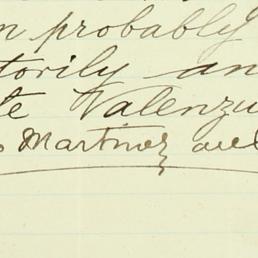 n probably
torily an
te Valenzu
s Martinez and